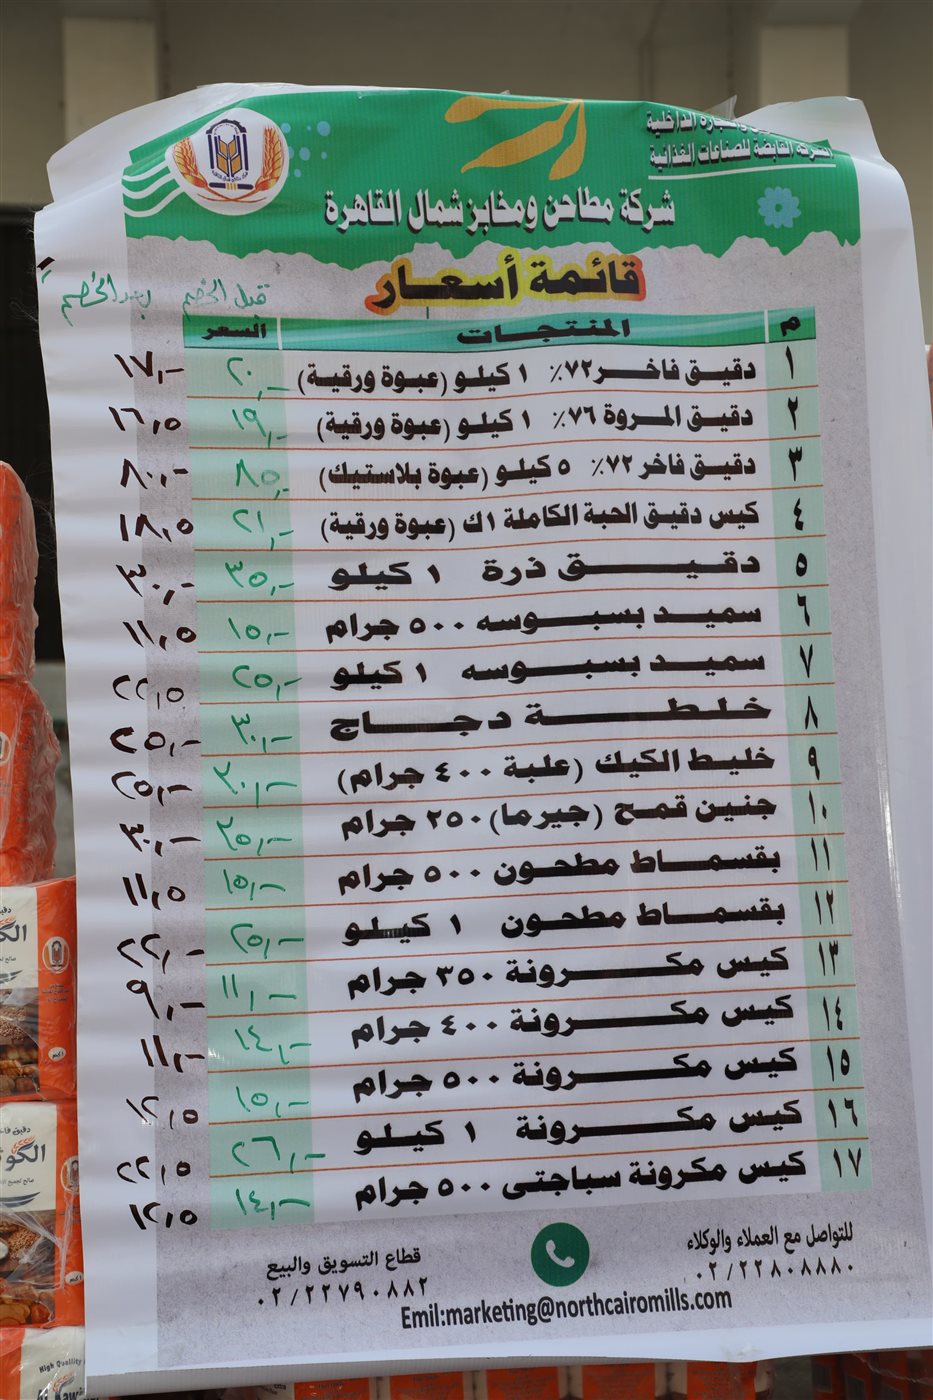 التجارة الداخلية
الشركة القابضة للصناعات الغذائية
شركة مطاحن ومخابز شمال القاهرة
قائمة أسعار
قبل الخصم بعد الخصم
م المنتجات السعر
١ دقيق فاخر ٧٢٪ ١ كيلو (عبوة ورقية) ٢٠,- ١٧,-
٢ دقيق المروة ٧٦٪ ١ كيلو (عبوة ورقية) ١٩,- ١٦,٥
٣ دقيق فاخر ٧٢٪ ٥ كيلو (عبوة بلاستيك) ٨٥,- ٨٠,-
٤ كيس دقيق الحبة الكاملة ١ك (عبوة ورقية) ٢١,- ١٨,٥
٥ دقيق ذرة ١ كيلو ٣٥,- ٣٠,-
٦ سميد بسبوسه ٥٠٠ جرام ١٥,- ١١,٥
٧ سميد بسبوسه ١ كيلو ٢٥,- ٢٢,٥
٨ خلطة دجاج ٣٠,- ٢٥,-
٩ خليط الكيك (علبة ٤٠٠ جرام) ٣٠,- ٢٥,-
١٠ جنين قمح (جيرما) ٢٥٠ جرام ٣٥,- ٣٠,-
١١ بقسماط مطحون ٥٠٠ جرام ١٥,- ١١,٥
١٢ بقسماط مطحون ١ كيلو ٢٥,- ٢٢,-
١٣ كيس مكرونة ٣٥٠ جرام ١١,- ٩,-
١٤ كيس مكرونة ٤٠٠ جرام ١٤,- ١١,-
١٥ كيس مكرونة ٥٠٠ جرام ١٥,- ١٢,٥
١٦ كيس مكرونة ١ كيلو ٢٦,- ٢٢,٥
١٧ كيس مكرونة سباجتى ٥٠٠ جرام ١٤,- ١٢,٥
للتواصل مع العملاء والوكلاء
٠٢/٢٢٨٠٨٨٨٠
قطاع التسويق والبيع
٠٢/٢٢٧٩٠٨٨٢
Emil:marketing@northcairomills.com
High Quality